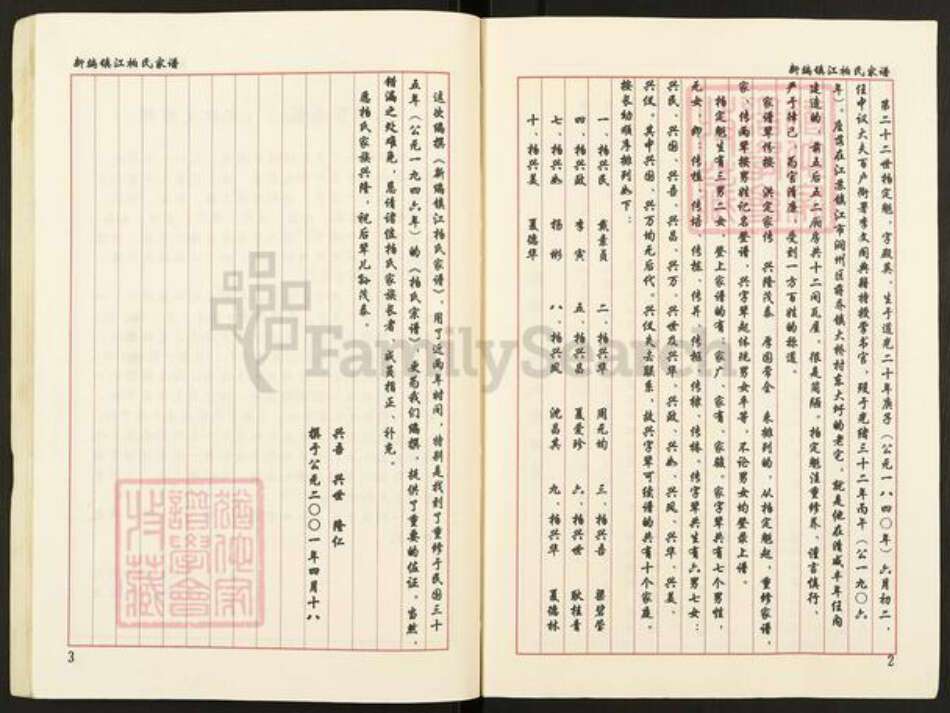 新编镇江杨氏家谱
第二十二世杨定魁，字殿英，生于道光二十年庚子（公元一八四○年）六月初二，
任中议大夫百户衔署李文阁典籍特授学书官，殁于光绪三十二年丙午（公一九○六
年）。座落在江苏镇江市润州区蒋乔镇大桥村东大圩的老宅，就是他在清咸丰年任内
建造的，前五后五二厢房共十二间瓦屋，很是简陋。杨定魁注重修养、谨言慎行、
严于律己、为官清廉，受到一方百姓的称道。
家谱辈份按 洪定家传 兴隆茂泰 来排列的，从杨定魁起，重修家谱，
家、传两辈按男姓记名登谱，兴字辈起体现男女平等，不论男女均登录上谱。
杨定魁生有三男二女，登上家谱的有：家广、家有、家骏。家字辈共有七个男性，
无女，即：传 传 传 传 传 传 传 。传字辈共生有六男七女：
兴民、兴国、兴吾、兴昌、兴万、兴世及兴华、兴政、兴如、兴凤、兴华、兴美、
兴仪。其中兴国、兴万均无后代。兴仪失去联系，故兴字辈可续谱的共有十个家庭。
按长幼顺序排列如下：
一、杨兴民 戴素贞 二、杨兴华 周元均 三、杨兴吾 梁碧莹
四、杨兴政 李寅 五、杨兴昌 夏爱珍 六、杨兴世 耿桂青
七、杨兴如 杨彬 八、杨兴凤 沈昌其 九、杨兴华 夏德林
十、杨兴美 夏德华
2
新编镇江杨氏家谱
这次编撰《新编镇江杨氏家谱》，用了近两年时间，特别是找到了重修于民国三十
五年（公元一九四六年）的《杨氏宗谱》更为我们编撰，提供了重要的佐证。当然，
错漏之处难免，恳请诸位杨氏家族长者、成员指正、补充。
愿杨氏家族兴隆，祝后辈儿孙茂泰。
兴吾 兴世 隆仁
撰于公元二○○一年四月十八
3
FamilySearch